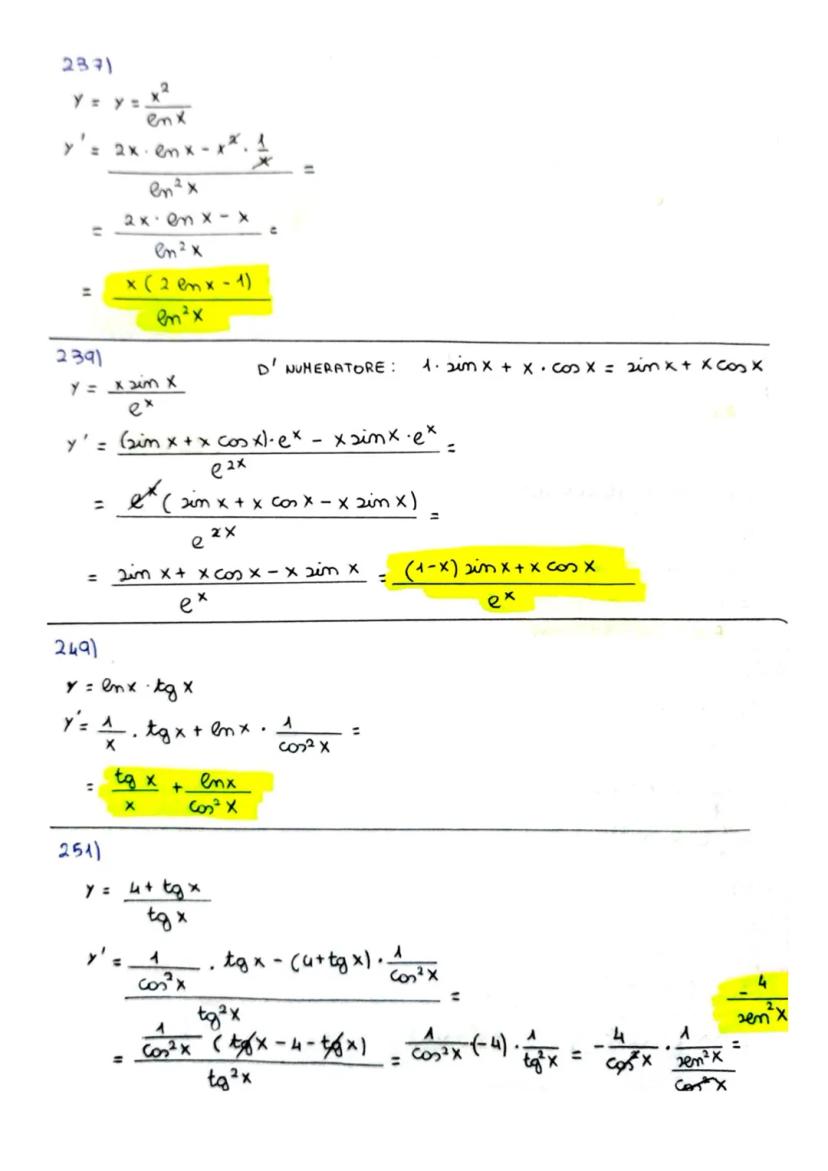 237)
y = y = x²/ln x
y' = (2x · ln x - x² · 1/x)/ln² x =
= (2x · ln x - x)/ln² x =
= x(2 ln x - 1)/ln² x
239)
D' NUMERATORE: 1 · sin x + x · cos x = sin x + x cos x
y = x sin x/e^x
y' = ((sin x + x cos x) · e^x - x sin x · e^x)/e^2x =
= e^x (sin x + x cos x - x sin x)/e^2x =
= (sin x + x cos x - x sin x)/e^x = ((1-x) sin x + x cos x)/e^x
249)
y = ln x · tg x
y' = 1/x · tg x + ln x · 1/cos² x =
= tg x/x + ln x/cos² x
251)
y = (4 + tg x)/tg x
y' = (1/cos² x · tg x - (4 + tg x) · 1/cos² x)/tg² x =
= (1/cos² x (tg x - 4 - tg x))/tg² x = 1/cos² x (-4) · 1/tg² x = - 4/cos² x · 1/(sen² x/cos² x) = - 4/sen² x